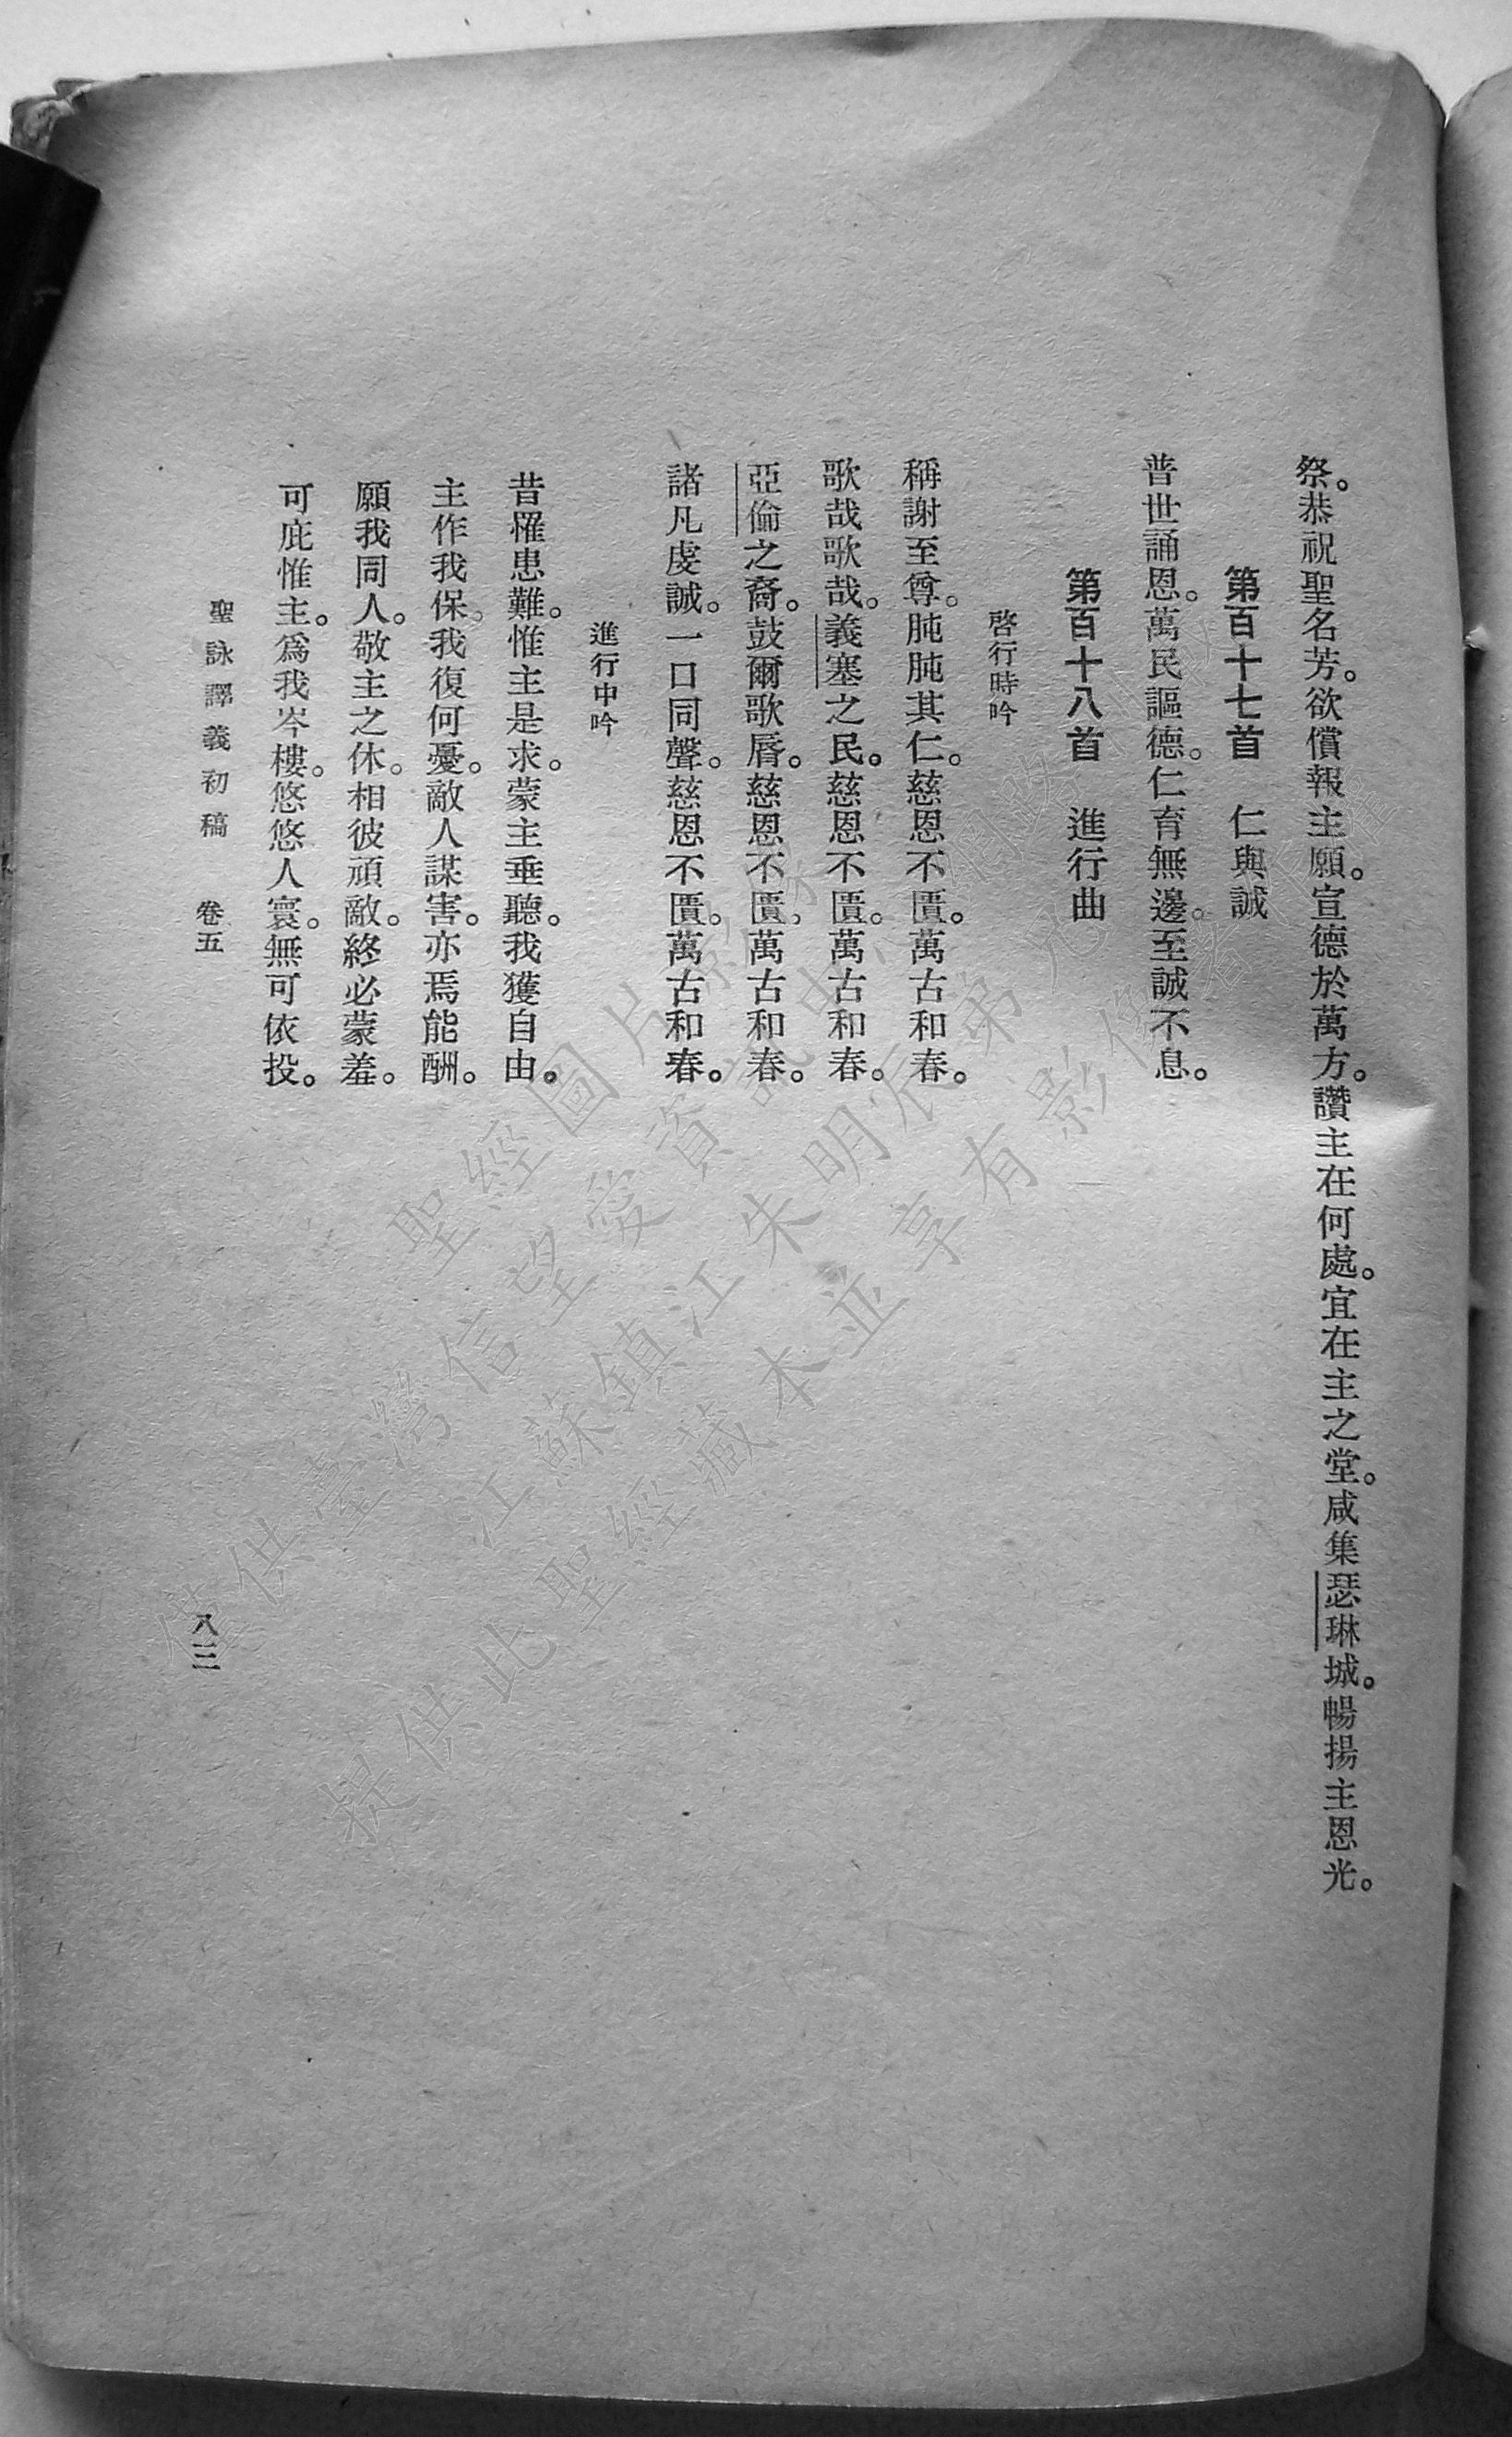 祭。恭祝聖名芳。欲償報主願。宣德於萬方。讚主在何處。宜在主之堂。咸集瑟琳城。暢揚主恩光。
第百十七首　仁與誠
普世誦恩。萬民謳德。仁育無邊。至誠不息。
第百十八首　進行曲
啓行時吟
稱謝至尊。肫肫其仁。慈恩不匱。萬古和春。
歌哉歌哉。義塞之民。慈恩不匱。萬古和春。
亞倫之裔。鼓爾歌脣。慈恩不匱。萬古和春。
諸凡虔誠。一口同聲。慈恩不匱。萬古和春。
進行中吟
昔罹患難。惟主是求。蒙主垂聽。我獲自由。
主作我保。我復何憂。敵人謀害。亦焉能酬。
願我同人。敬主之休。相彼頑敵。終必蒙羞。
可庇惟主。爲我岑樓。悠悠人寰。無可依投。
聖詠譯義初稿　卷五
八三
僅供臺灣信望愛資訊中心
聖經圖片
江蘇鎮江朱明辰弟兄
提供此聖經藏本並享有影像